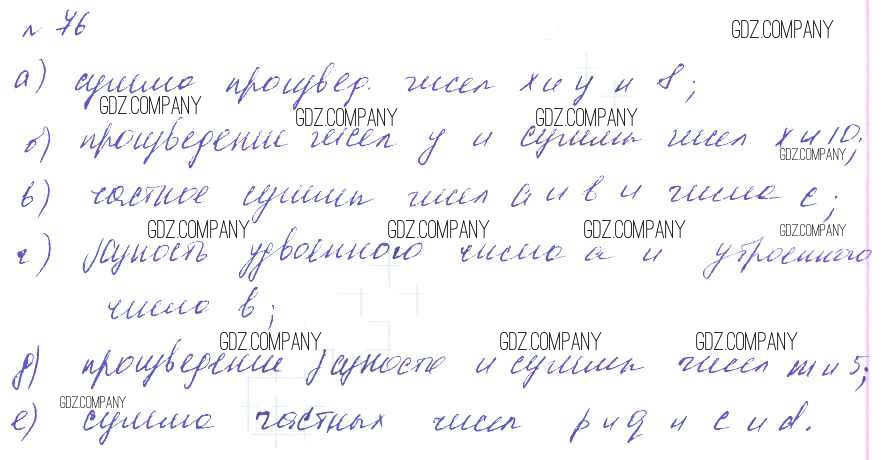 № 76
GDZ.COMPANY
а) сумма произвед. чисел x и y и 8;
GDZ.COMPANY GDZ.COMPANY GDZ.COMPANY
б) произведение чисел y и суммы чисел x и 10;
GDZ.COMPANY
в) частное суммы чисел a и b и числа c;
GDZ.COMPANY GDZ.COMPANY GDZ.COMPANY GDZ.COMPANY
г) разность удвоенного числа a и утроенного
числа b;
GDZ.COMPANY GDZ.COMPANY GDZ.COMPANY
д) произведение разности и суммы чисел m и 5;
GDZ.COMPANY
е) сумма частных чисел p и q и c и d.